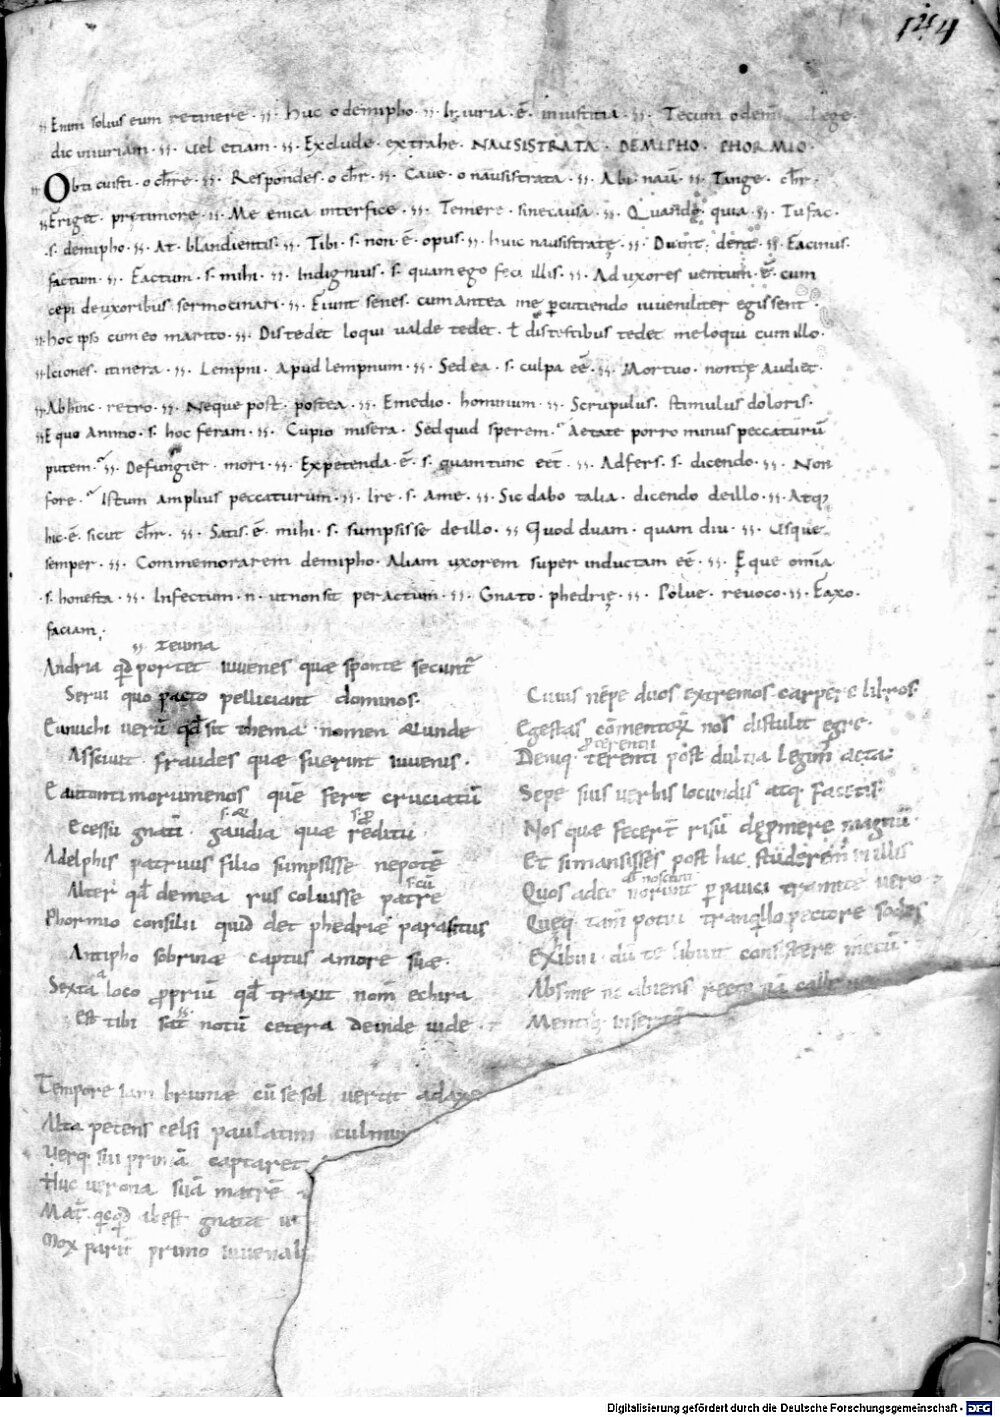 144
Enim solius eum retinere · Huc o demipho · Iniuria · ē · iniustitia · Tecum o dem lege ·
dic iniuriam · Uel etiam · Exclude · extrahe · NAUSISTRATA · DEMIPHO · PHORMIO ·
Obticuisti · o chre · Respondes · o chr · Caue · o nausistrata · Abi nau · Tange · chr ·
Eriget · pre timore · Me enica interfice · Temere · sine causa · Quando · quia · Tu fac ·
·s· demipho · At · blandientis · Tibi · s · non · ē · opus · huic nausistratę · Duint · dent · Facinus ·
factum · Factum · s · mihi · Indignius · s · quam ego feci illis · Ad uxores uentum · ē · cum
cepi de uxoribus sermocinari · Fiunt senes · cum antea me ꝑcutiendo iuueniliter egissent ·
hoc ipso cum eo marito · Distedet loqui ualde tedet · ł distestibus tedet me loqui cum illo ·
Itiones · itinera · Lempni · Apud lempnum · Sed ea · s · culpa eē · Mortuo · non te Audiet ·
Abhinc · retro · Neque post · postea · E medio · hominum · Scrupulus · stimulus doloris ·
E quo Animo · s · hoc feram · Cupio misera · Sed quid sperem · Aetate porro minus peccaturū
putem · Defungier · mori · Expetenda · ē · s · quam tunc eēt · Adfers · s · dicendo · Non
fore · Istum amplius peccaturum · Ire · s · A me · Sic dabo talia · dicendo de illo · Atq;
hic · ē · sicut chr · Satis · ē · mihi · s · sumpsisse de illo · Quod duam · quam diu · Usque
semper · Commemorarem demipho · Aliam uxorem super inductam eē · Eque omīa
·s· honesta · Infectum · n · ut non sit peractum · Gnato · phedrię · Polue · reuoco · Faxo ·
faciam ·
Andria qđ portet iuuenes quae sponte secunt
Serui quo pacto pelliciant dominos ·
Eunuchi uerū qđ sit thema nomen & unde
Assciuit fraudes quae fuerint iuuenis ·
Eautontimorumenos que fert cruciatū
Ecessū gnati · gaudia quae reditu ·
Adelphis patruus filio sumpsisse nepotē
Alter qđ demea rus coluisse patrē
Phormio consilii quid det phedriae parasitus
Antipho sobrinae captus amore suae ·
Sexta loco ꝓpriū qđ traxit nom echira
est tibi sat notū cetera deinde uide ·
Cuius nēpe duos extremos carpere libros ·
Egestas cōmentoꝝ nos distulit egre ·
ꝓ terentii
Deniq terenti post dultia legim acta
Sepe suis uerbis iocundis atq facetis ·
Nos quae fecert risū dępmere magnū ·
Et si mansisses post hac studerem in illis
Quos adeo norunt ꝑpauci tramite uero
Queq tam potui tranqllo pectore sodes
Exibui · du te libuit consistere mecū ·
Abs me
Tempore iam brumae cū se sol uertit ad axe
Alta petens celsi paulatim culmin
Uerq sui primā captaret
Huc uerona suā matrē
gnata
Mox parit primo iuuenal
Digitalisierung gefördert durch die Deutsche Forschungsgemeinschaft - DFG